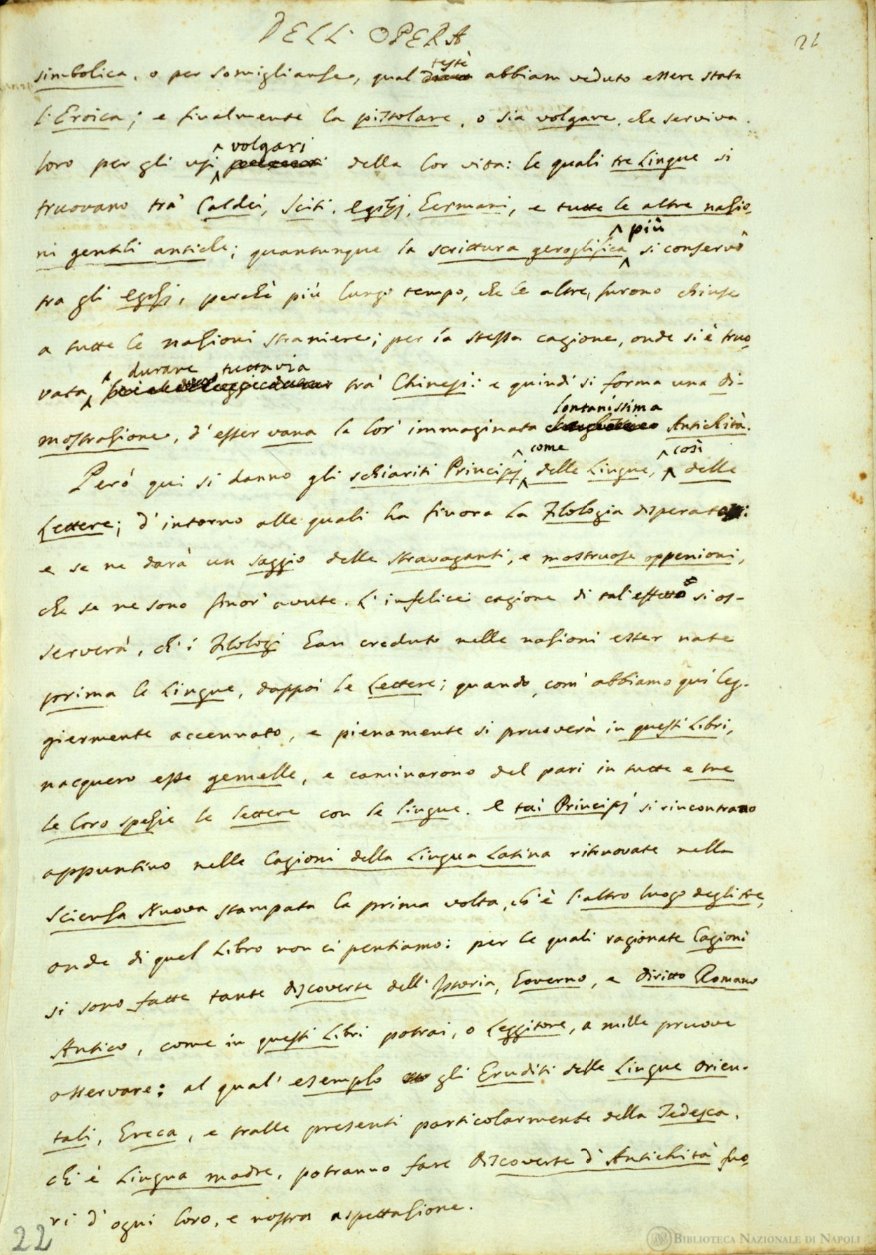 DELL' OPERA
21
simbolica, o per somiglianze, qual testè abbiam veduto essere stata
l'Eroica; e finalmente la pistolare, o sia volgare, che serviva
loro per gli usi volgari della lor vita: le quali tre Lingue si
truovano tra' Caldei, Sciti, Egizj, Germani, e tutte le altre nazio-
ni gentili antiche; quantunque la scrittura geroglifica più si conservò
tra gli Egizj, perchè più lungo tempo, che le altre, furono chiusi
a tutte le nazioni straniere; per la stessa cagione, onde si è truo-
vata durare tuttavia tra' Chinesi: e quindi si forma una di-
mostrazione, d'esser vana la lor' immaginata lontanissima Antichità.
Però qui si danno gli schiariti Principj come delle Lingue, così delle
Lettere; d'intorno alle quali ha finora la Filologia disperato:
e se ne darà un saggio delle stravaganti, e mostruose oppenioni,
che se ne sono finor' avute. L'infelice cagione di tal'effetto si os-
serverà, ch'i Filologi han creduto nelle nazioni esser nate
prima le Lingue, dappoi le Lettere; quando, com' abbiamo qui leg-
giermente accennato, e pienamente si pruoverà in questi Libri,
nacquero esse gemelle, e caminarono del pari in tutte e tre
le loro spezie le lettere con le lingue. E tai Principj si rincontrano
appuntino nelle Cagioni della Lingua Latina ritruovate nella
Scienza Nuova stampata la prima volta, ch'è l'altro luogo degli tre,
onde di quel Libro non ci pentiamo: per le quali ragionate Cagioni
si sono fatte tante discoverte dell' Istoria, Governo, e diritto Romano
Antico, come in questi Libri potrai, o Leggitore, a mille pruove
osservare: al qual' esemplo gli Eruditi delle Lingue Orien-
tali, Greca, e tralle presenti particolarmente della Tedesca,
ch'è Lingua madre, potranno fare discoverte d'Antichità fuo-
ri d'ogni loro, e nostra aspettazione.
22
BIBLIOTECA NAZIONALE DI NAPOLI